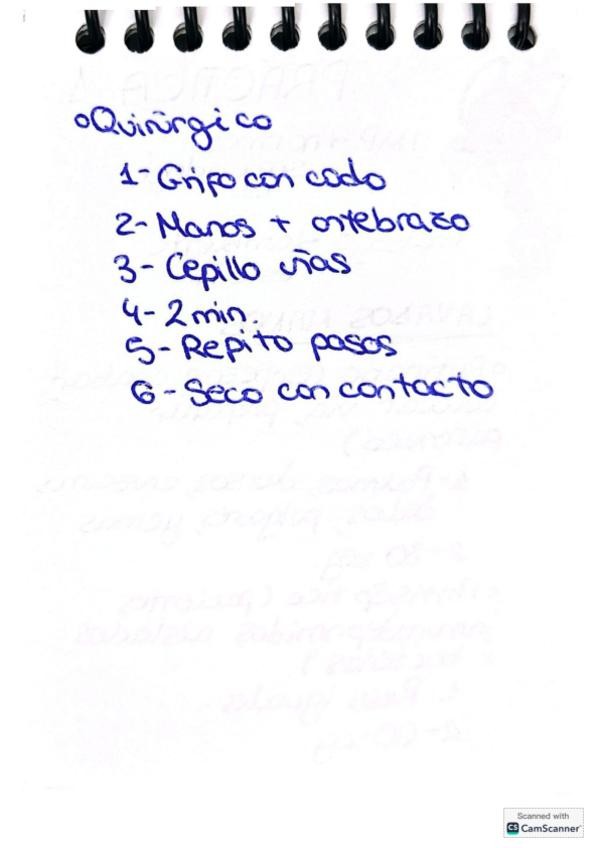 Quirúrgico
1- Grifo con codo
2- Manos + antebrazo
3- Cepillo uñas
4- 2 min.
5- Repito pasos
6- Seco con contacto
Scanned with
CS CamScanner